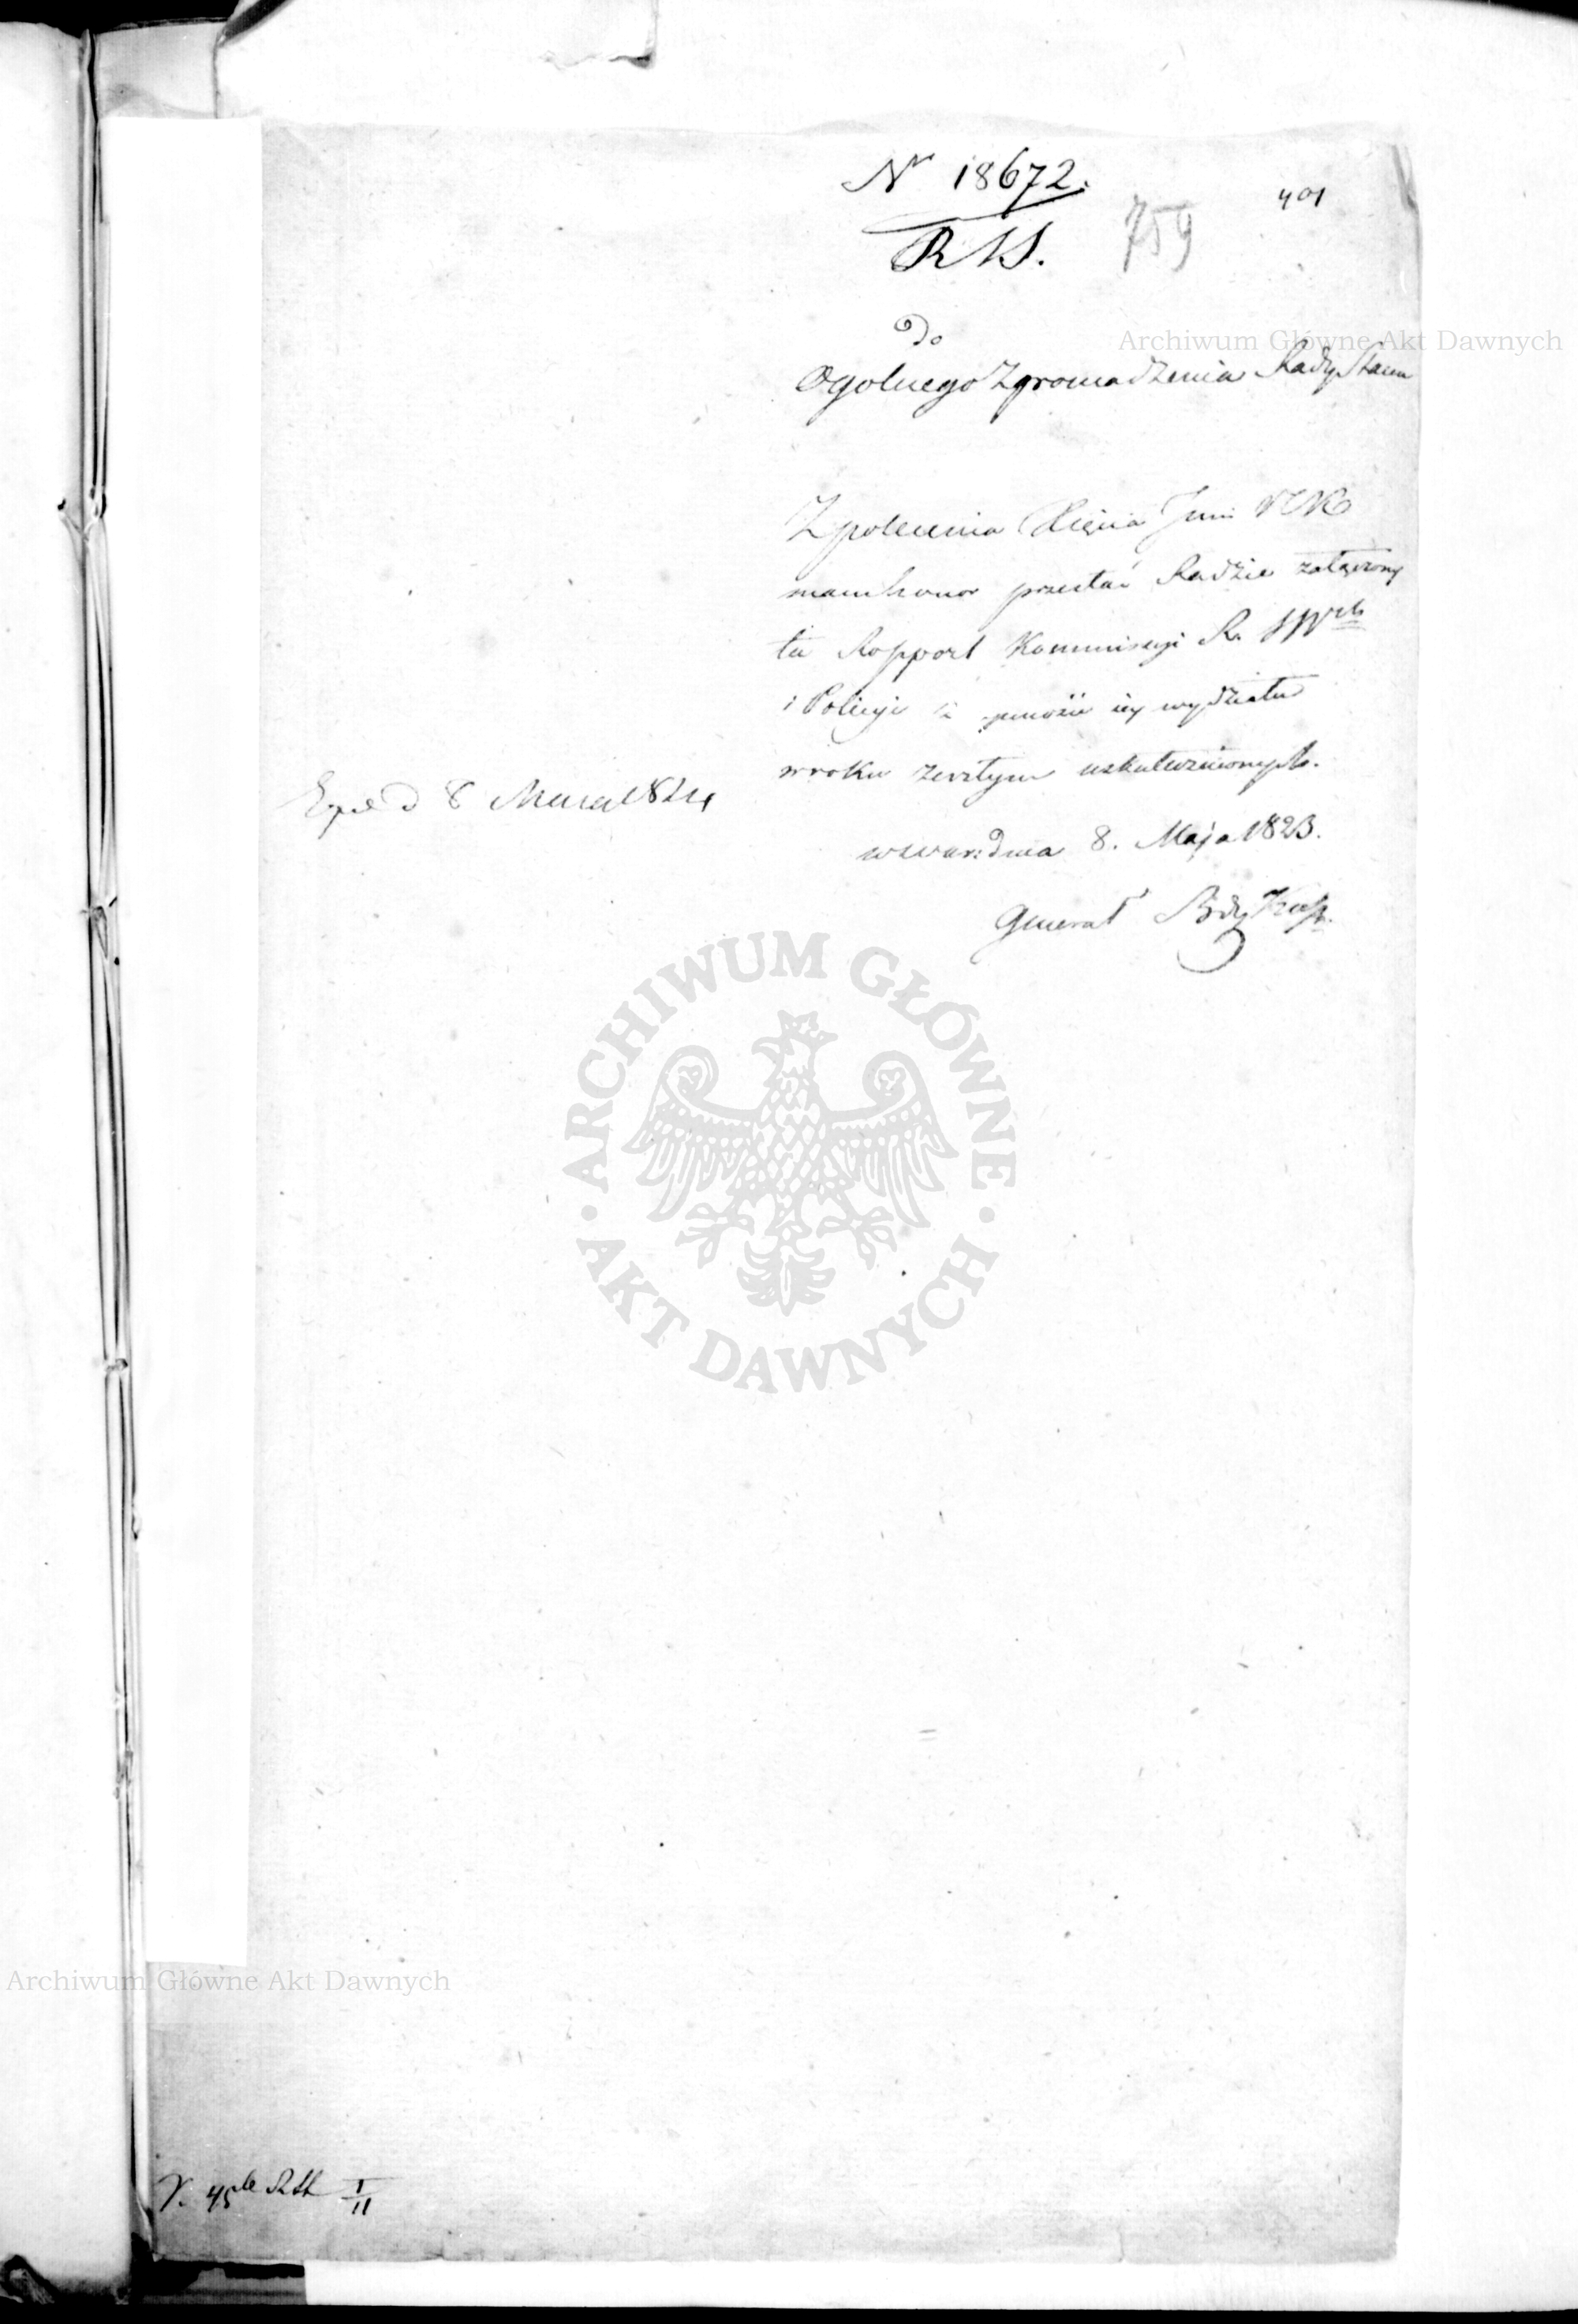 Nr 18672.
RSS.
759
401
Archiwum Główne Akt Dawnych
Do
Ogolnego Zgromadzenia Rady Stanu
Z polecenia Xięcia Jmci
mam honor przesłać Radzie załączony
tu Rapport Kommissyi R.
i Policyi w jey wydziału
w roku zeszłym uskutecznionych.
Exped 8 Maia
w Warsz: dnia 8. Maja 1823.
Generał Bdy
ARCHIWUM GŁÓWNE
AKT DAWNYCH
Archiwum Główne Akt Dawnych
V. 45 I
II